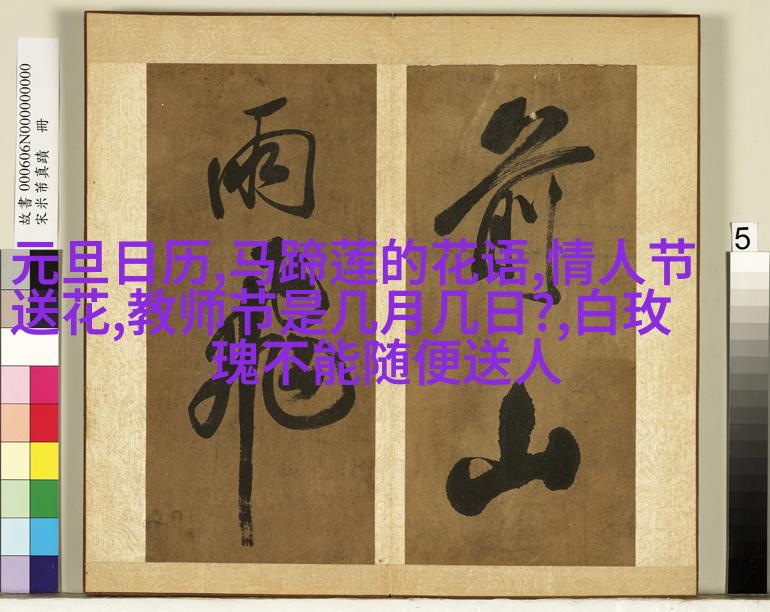 元旦日历,马蹄莲的花语,情人节
送花,教师节是几月几日?,白玫
瑰不能随便送人
前山
雨飛
故書 000606N000000000
宋米芾真蹟 冊
5